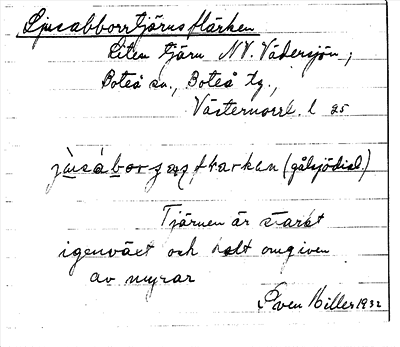 Ljusabborrtjärnsflärken
Liten tjärn NV. Vädersjön,
Boteå sn., Boteå tg.,
Västernorrl. l 25
(gålsjödial.)
Tjärnen är starkt
igenväxt och helt omgiven
av myrar
Sven Hiller 1932